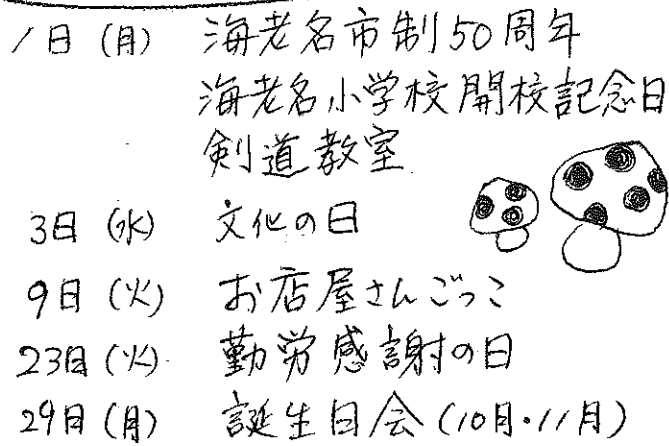 1日(月) 海老名市制50周年
海老名小学校開校記念日
剣道教室
3日(水) 文化の日
9日(火) お店屋さんごっこ
23日(火) 勤労感謝の日
29日(月) 誕生日会(10月・11月)